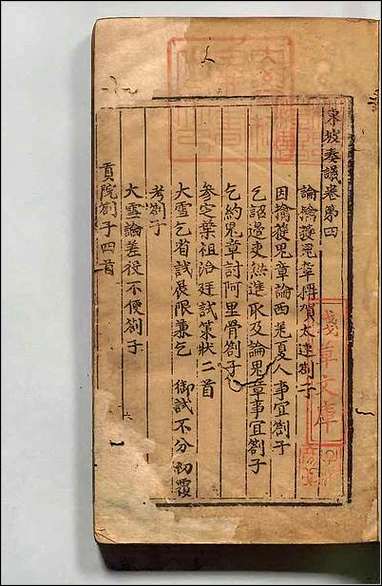 東坡奏議卷第四
論擒獲鬼章稱賀太速劄子
因擒獲鬼章論西羌夏人事宜劄子
乞詔邊吏無進取及論鬼章事宜劄子
乞約鬼章討阿里骨劄子
參定葉祖洽廷試策狀二首
大雪乞省試展限兼乞 御試不分初覆
考劄子
大雪論差役不便劄子
貢院劄子四首
文庫